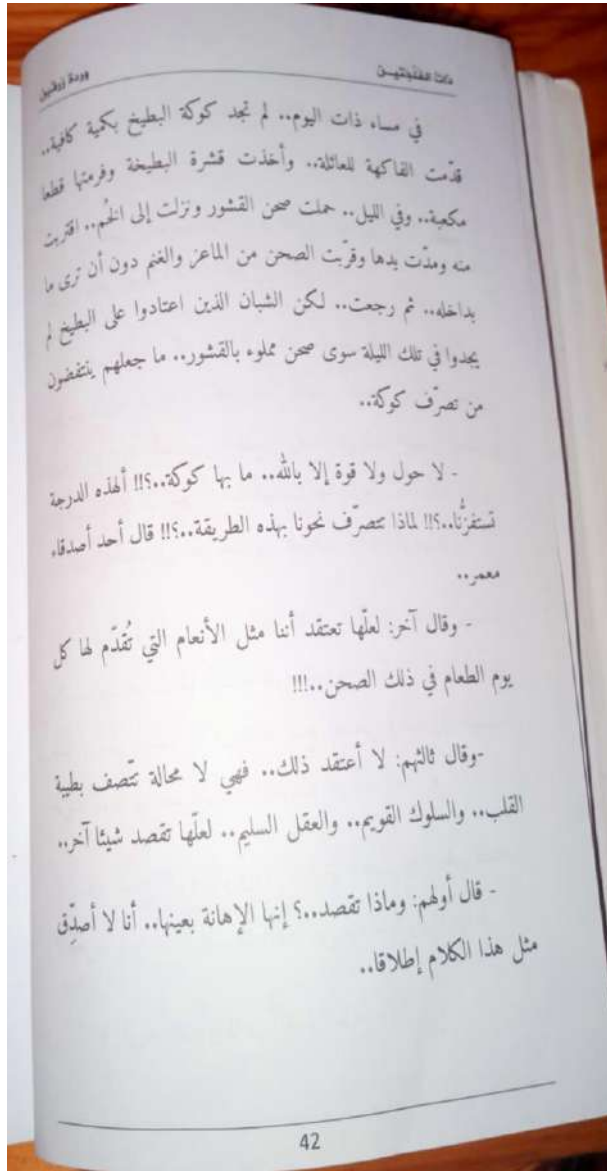 وردة زرقين
في مساء ذات اليوم.. لم تجد كوكة البطيخ بكمية كافية..
قدّمت الفاكهة للعائلة.. وأخذت قشرة البطيخة وفرمتها قطعا
مكعبة.. وفي الليل.. حملت صحن القشور ونزلت إلى الخُم.. اقتربت
منه ومدّت يدها وقرّبت الصحن من الماعز والغنم دون أن ترى ما
بداخله.. ثم رجعت.. لكن الشبان الذين اعتادوا على البطيخ لم
يجدوا في تلك الليلة سوى صحن مملوء بالقشور.. ما جعلهم ينتفضون
من تصرّف كوكة..
- لا حول ولا قوة إلا بالله.. ما بها كوكة..؟!! ألهذه الدرجة
تستفزُّنا..؟!! لماذا تتصرّف نحونا بهذه الطريقة..؟!! قال أحد أصدقاء
معمر..
- وقال آخر: لعلّها تعتقد أننا مثل الأنعام التي تُقدّم لها كل
يوم الطعام في ذلك الصحن..!!!
-وقال ثالثهم: لا أعتقد ذلك.. فهي لا محالة تتّصف بطيبة
القلب.. والسلوك القويم.. والعقل السليم.. لعلّها تقصد شيئا آخر..
- قال أولهم: وماذا تقصد..؟ إنها الإهانة بعينها.. أنا لا أصدِّق
مثل هذا الكلام إطلاقا..
42